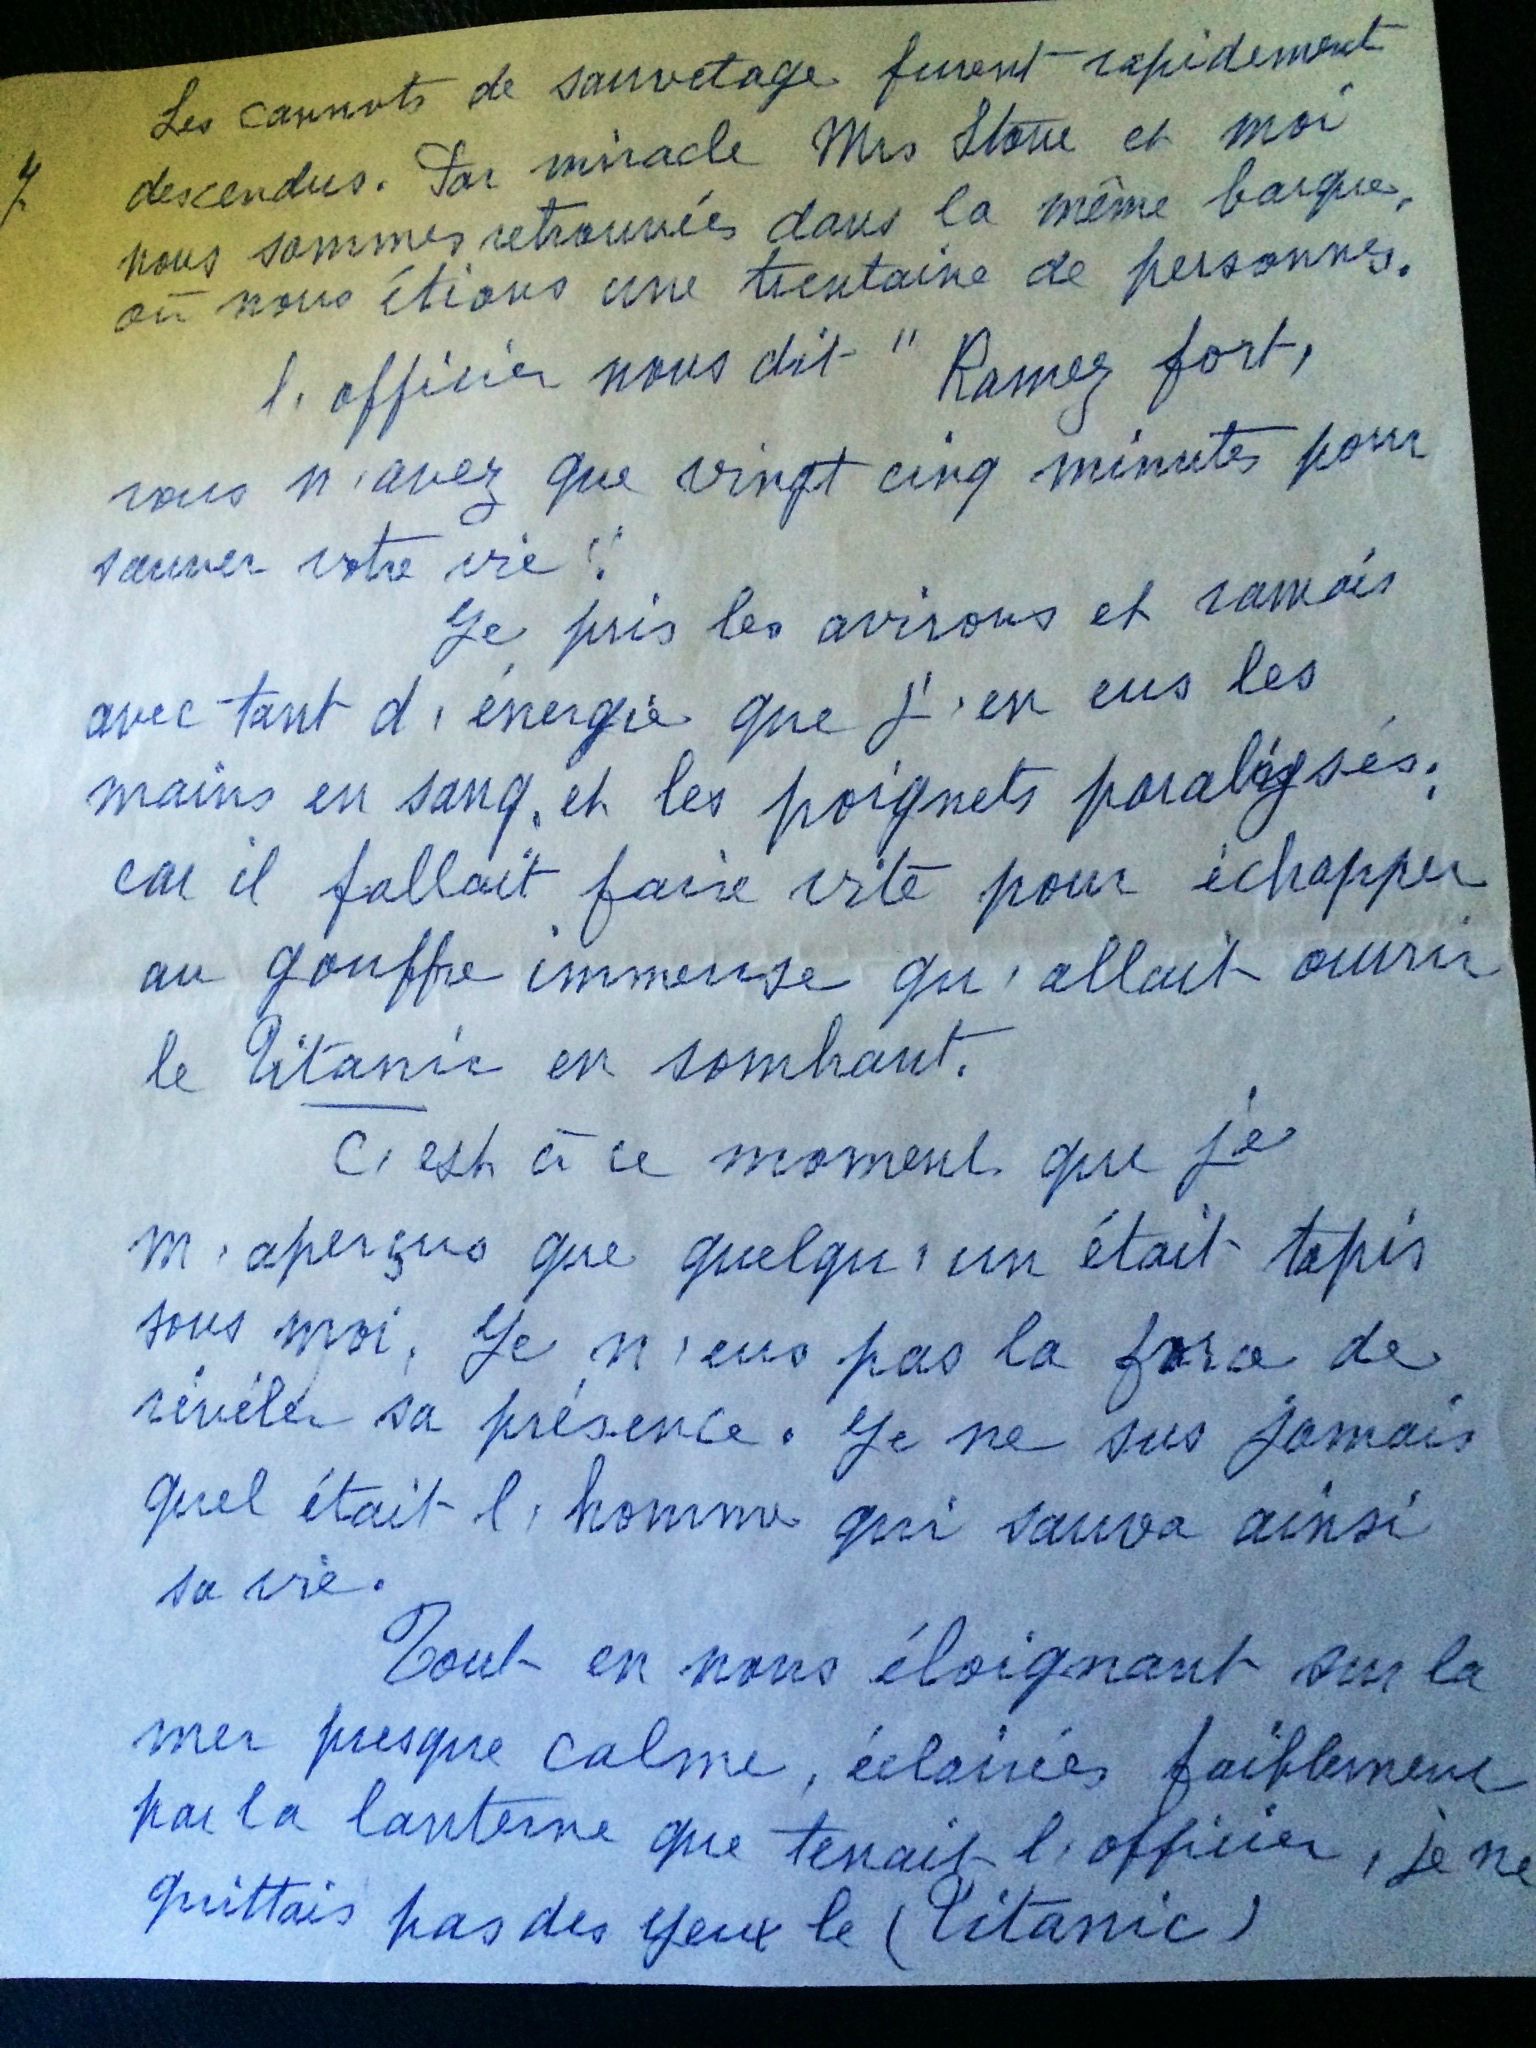 Les cannots de sauvetage furent rapidement
7
descendus. Par miracle Mrs Stone et moi
nous sommes retrouvées dans la même barque,
où nous étions une trentaine de personnes.
l'officier nous dit " Ramez fort,
vous n'avez que vingt cinq minutes pour
sauver votre vie ".
Je pris les avirons et ramais
avec tant d'énergie que j'en eus les
mains en sang, et les poignets paralysés;
car il fallait faire vite pour échapper
au gouffre immense qu'allait ouvrir
le Titanic en sombrant.
C'est à ce moment que je
m'aperçus que quelqu'un était tapis
sous moi. Je n'eus pas la force de
révéler sa présence. Je ne sus jamais
quel était l'homme qui sauva ainsi
sa vie.
Tout en nous éloignant sur la
mer presque calme, éclairées faiblement
par la lanterne que tenait l'officier, je ne
quittais pas des yeux le (Titanic)